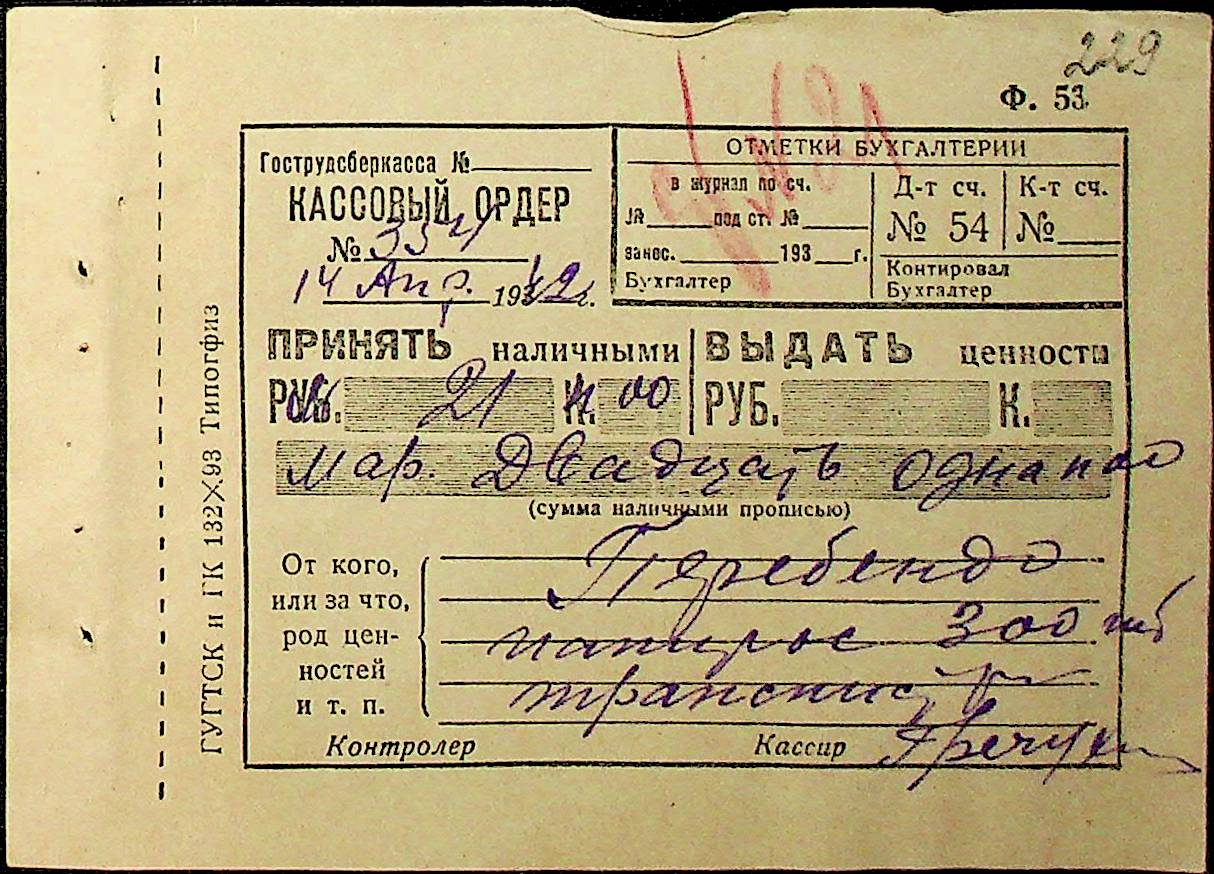 229
Ф. 53
Гострудсберкасса №
КАССОВЫЙ ОРДЕР
№ 354
14 Апр. 1942 г.
ОТМЕТКИ БУХГАЛТЕРИИ
в журнал по сч.
№ под ст. №
занос. 193 г.
Бухгалтер
Д-т сч.
№ 54
К-т сч.
№
Контировал
Бухгалтер
ПРИНЯТЬ наличными
РУБ. 21 К. 00
ВЫДАТЬ ценности
РУБ. К.
мар. Двадцать одна
(сумма наличными прописью)
От кого,
или за что,
род цен-
ностей
и т. п.
Перебендо
папирос 300 шт
Контролер
Кассир
ГУГТСК и ГК 132×93 Типогфиз